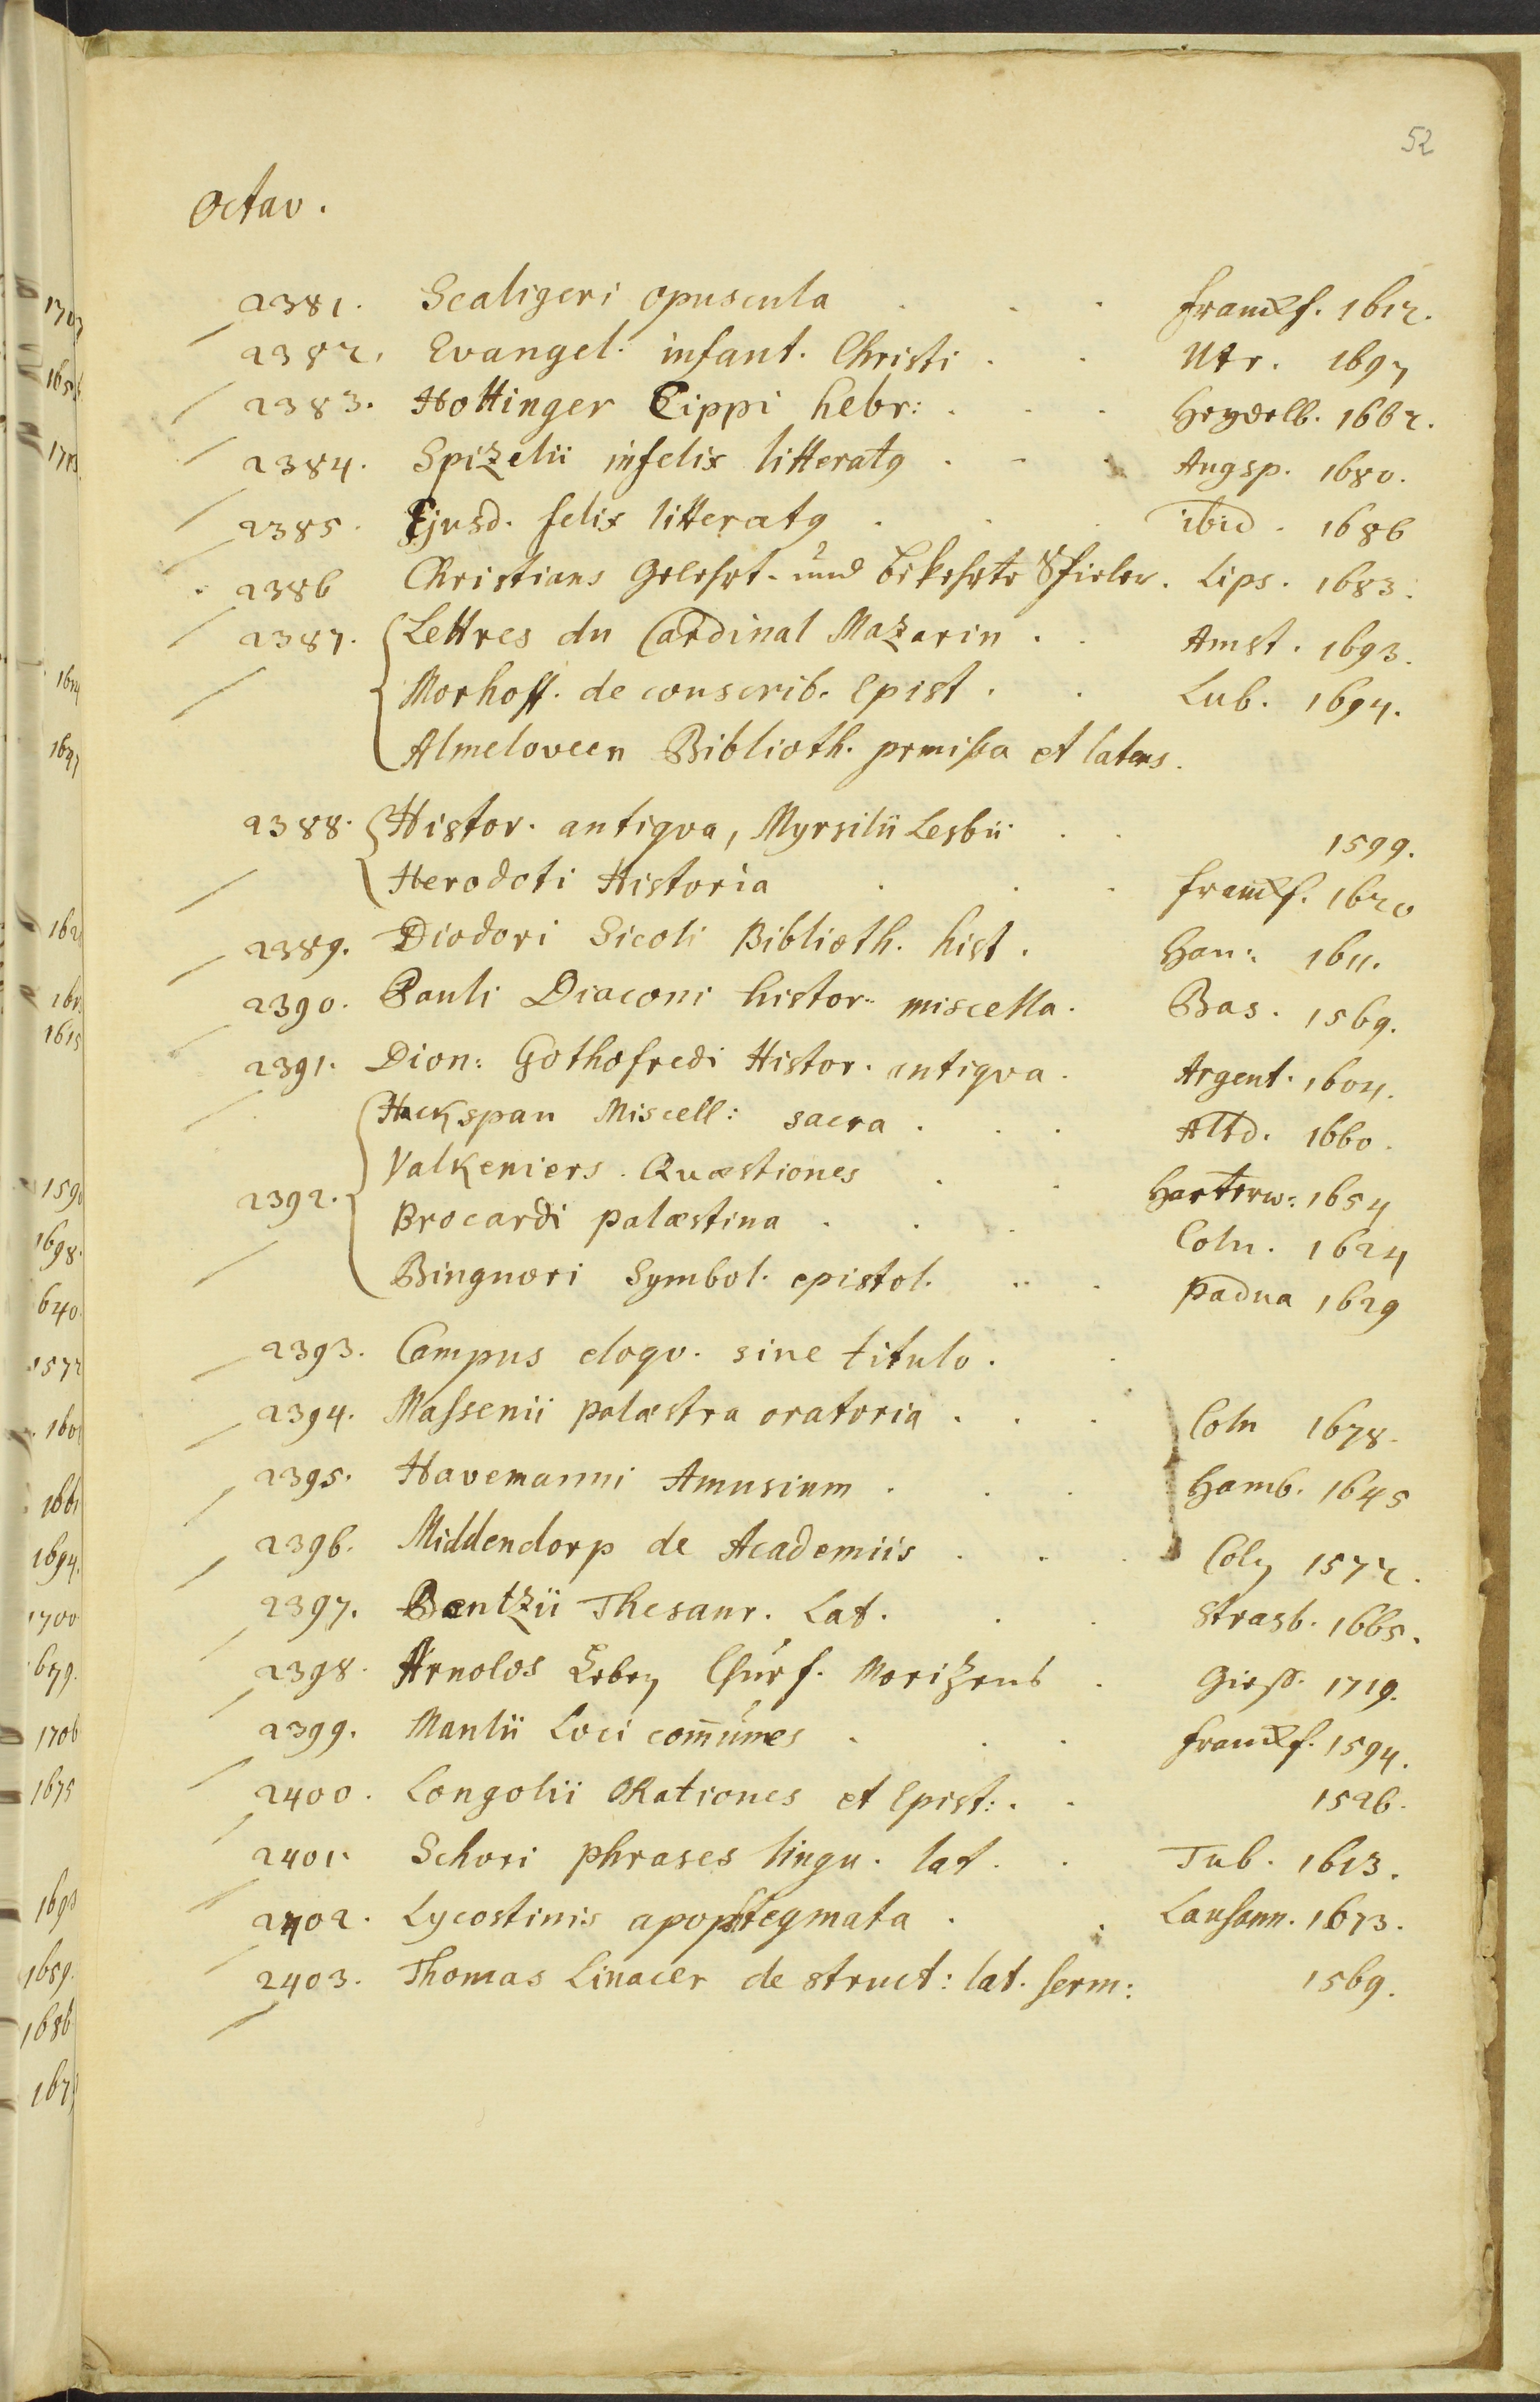 52
Octav.
2381. Scaligeri opuscula . . . Franckf. 1612.
2382. Evangel. infant. Christi . . Utr. 1697
2383. Hottinger Cippi hebr: . . . Heydelb. 1662.
2384. Spizelii infelix litteratq . . . Augsp. 1680.
2385. Ejusd. felix litteratq . . . ibid. 1686
2386 Christians Gelehrt- und bekehrte Lips. 1683.
2387. Lettres du Cardinal Mazarin . . Amst. 1693.
Morhoff. de conscrib. Epist . . Lub. 1694.
Almeloveen Biblioth. promißa et latens.
2388. Histor. antiqva, Myrsilii Lesbii . . 1599.
Herodoti Historia . . . Franckf. 1620
2389. Diodori Sicoli Biblioth. hist. Han: 1611.
2390. Pauli Diaconi histor: miscella. Bas. 1569.
2391. Dion: Gothofredi Histor. antiqva. Argent. 1604.
Hackspan Miscell: sacra . . . Altd. 1660.
Valkeniers. Quæstiones . . Harterw: 1654
2392.
Brocardi palæstina . . . Coln. 1624
Symbol. epistol. . . Padua 1629
2393. Campus eloqv. sine titulo. .
2394. Massenii palæstra oratoria . . . Coln 1678.
2395. Havemanni Amusium . . . Hamb. 1645
2396. Middendorp de Academiis . . . Coln 1572.
2397. Bentzii Thesaur. Lat. . . Strasb. 1665.
2398. Arnolds Leben Churf. Morizens . Gieß. 1719.
2399. Manlii Loci com̅unes . . . Franckf. 1594.
2400. Longolii ORationes et Epist: . . 1526.
2401. Schori phrases lingu. lat. . Tub. 1613.
2402. Lycostinis apophtegmata . . Lausann. 1673.
2403. Thomas Linacer de struct: lat. serm: 1569.